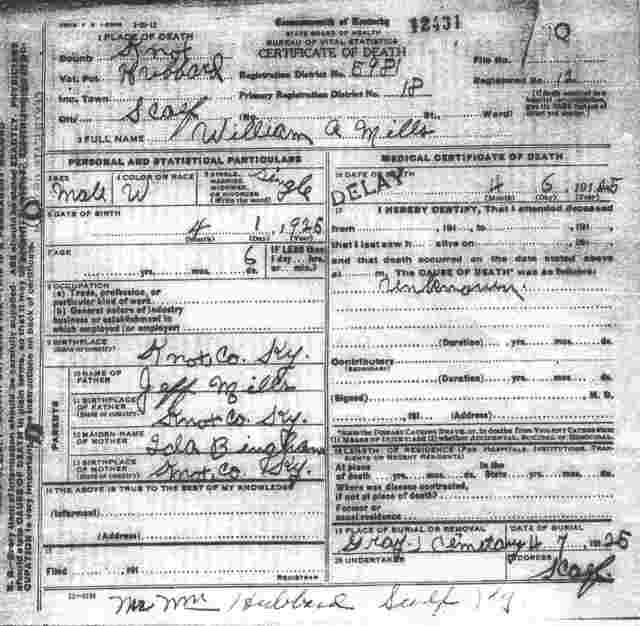 Commonwealth of Kentucky
STATE BOARD OF HEALTH
BUREAU OF VITAL STATISTICS
CERTIFICATE OF DEATH
12431
1 PLACE OF DEATH
County Knox
Vot. Pct. Hubbard
Inc. Town
City Scalf (No. St., Ward)
Registration District No. 5981
Primary Registration District No. 18
File No.
Registered No. 12
2 FULL NAME William A Mills
PERSONAL AND STATISTICAL PARTICULARS
3 SEX Male
4 COLOR OR RACE W
5 SINGLE, MARRIED, WIDOWED, OR DIVORCED (Write the word) Single
6 DATE OF BIRTH 4 1, 1925
(Month) (Day) (Year)
7 AGE
yrs. mos. 6 ds.
IF LESS than 1 day hrs. or min.?
8 OCCUPATION
(a) Trade, profession, or particular kind of work
(b) General nature of industry business or establishment in which employed (or employer)
9 BIRTHPLACE
(State or country) Knox Co. Ky.
PARENTS
10 NAME OF FATHER Jeff Mills
11 BIRTHPLACE OF FATHER (State or country) Knox Co. Ky.
12 MAIDEN NAME OF MOTHER Ida Bingham
13 BIRTHPLACE OF MOTHER (State or country) Knox Co. Ky.
14 THE ABOVE IS TRUE TO THE BEST OF MY KNOWLEDGE
(Informant)
(Address)
15
Filed , 191
REGISTRAR
MEDICAL CERTIFICATE OF DEATH
16 DATE OF DEATH
DELAY
4 6, 1925
(Month) (Day) (Year)
17 I HEREBY CERTIFY, That I attended deceased
from , 191 , to , 191 ,
that I last saw h alive on , 191 ,
and that death occurred on the date stated above
at m. The CAUSE OF DEATH* was as follows:
Unknown
(Duration) yrs. mos. ds.
Contributory
(SECONDARY)
(Duration) yrs. mos. ds.
(Signed) , M. D.
, 191 (Address)
18 LENGTH OF RESIDENCE (FOR HOSPITALS, INSTITUTIONS, TRANSIENTS OR RECENT RESIDENTS)
At place of death yrs. mos. ds. In the State yrs. mos. ds.
Where was disease contracted, if not at place of death?
Former or usual residence
19 PLACE OF BURIAL OR REMOVAL DATE OF BURIAL
Gray Cemetary 4 7, 1925
20 UNDERTAKER ADDRESS
Scalf
Mr Wm Hubbard Scalf Ky